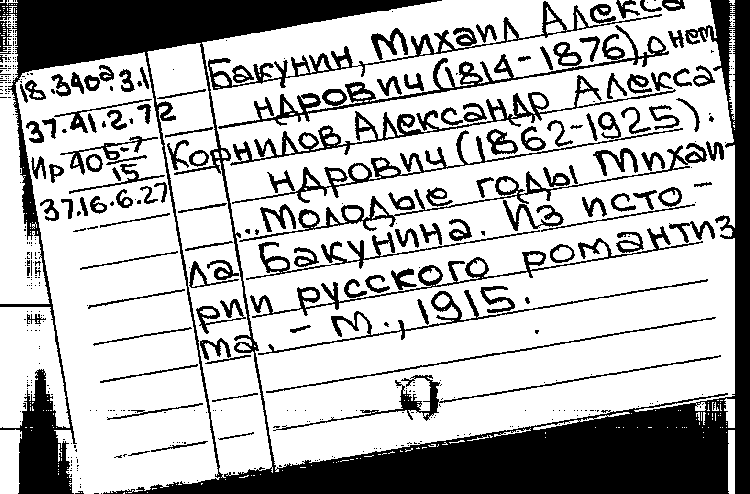 18.340а.3.1
37.41.2.72
Ир 40 5-7/15
37.16.6.27
Бакунин, Михаил Алекса
ндрович (1814-1876), о нем
Корнилов, Александр Алекса-
ндрович (1862-1925).
...Молодые годы Михаи-
ла Бакунина. Из исто-
рии русского романтиз
ма. - М., 1915.